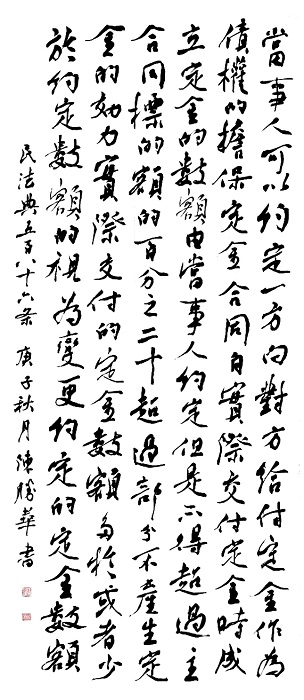 當事人可以約定一方向對方給付定金作為
債權的擔保定金合同自實際交付定金時成
立定金的數額由當事人約定但是不得超過主
合同標的額的百分之二十超過部分不產生定
金的効力實際交付的定金數額多於或者少
於約定數額的視為變更約定的定金數額
民法典五百八十六条 庚子秋月陳勝華書